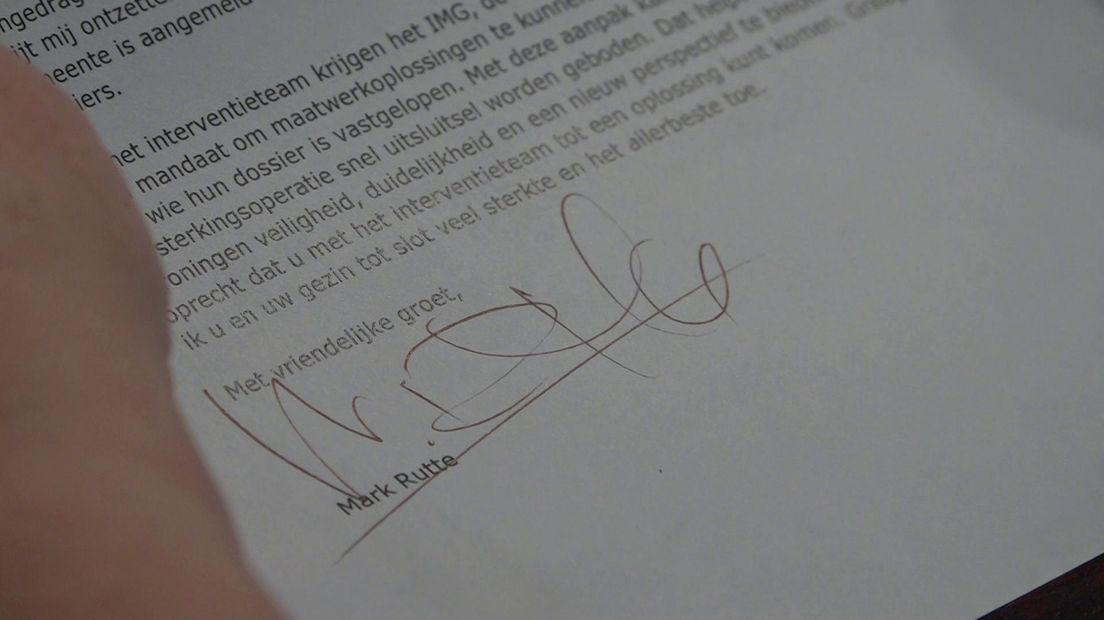 ngedrag
ijt mij ontzette
eente is aangemeld
iers.
het interventieteam krijgen het IMG, de
mandaat om maatwerkoplossingen te kunnen
wie hun dossier is vastgelopen. Met deze aanpak ka
sterkingsoperatie snel uitsluitsel worden geboden. Dat help
oningen veiligheid, duidelijkheid en een nieuw perspectief te bieden
oprecht dat u met het interventieteam tot een oplossing kunt komen. Graag
ik u en uw gezin tot slot veel sterkte en het allerbeste toe.
Met vriendelijke groet,
Mark Rutte